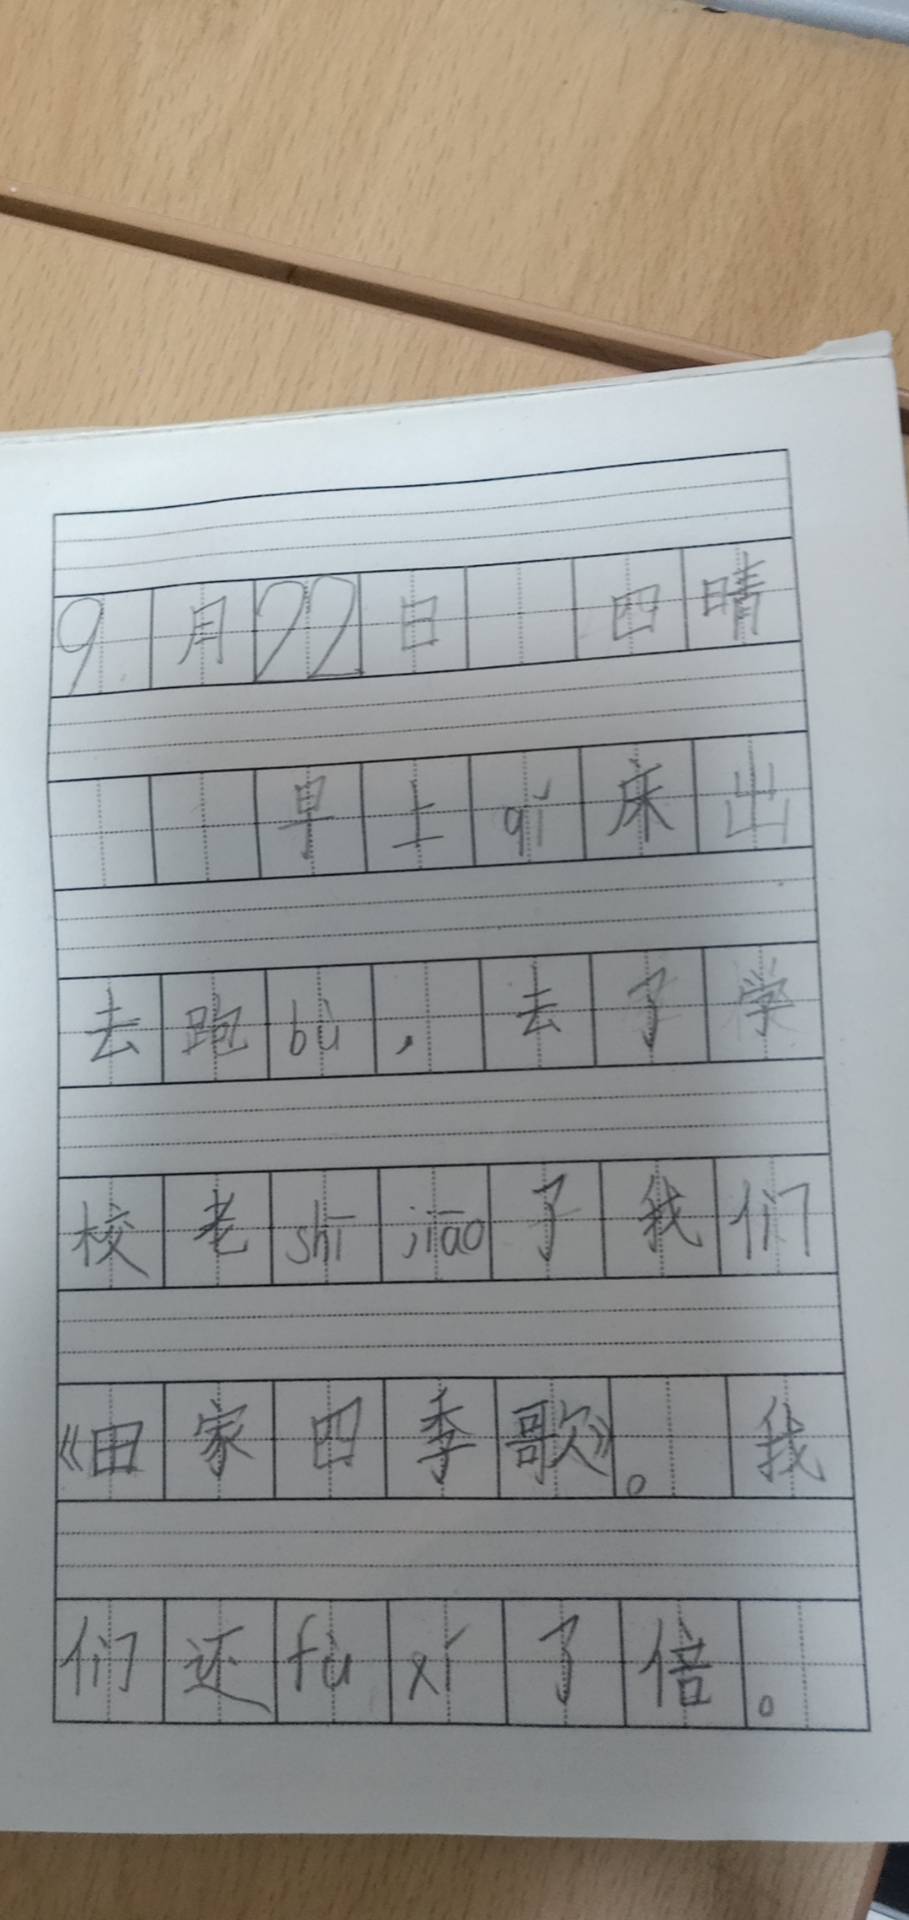 9月22日 四晴
早上qǐ床出
去跑bù，去了学
校老shījiāo了我们
《田家四季歌》。我
们还fùxí了倍。